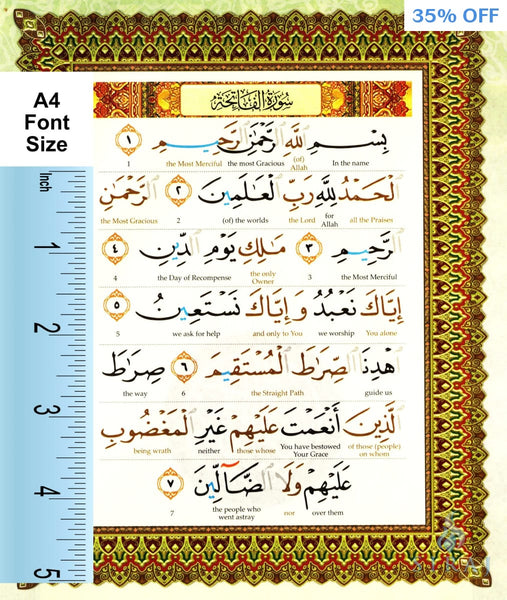 35% OFF
A4
Font
Size
Inch
1
2
3
4
5
سُورَةُ الْفَاتِحَةِ
بِسْمِ اللَّهِ الرَّحْمَٰنِ الرَّحِيمِ ١
In the name (of) Allah the most Gracious the Most Merciful 1
الْحَمْدُ لِلَّهِ رَبِّ الْعَالَمِينَ ٢ الرَّحْمَٰنِ
all the Praises for Allah the Lord (of) the worlds 2 the Most Gracious
الرَّحِيمِ ٣ مَالِكِ يَوْمِ الدِّينِ ٤
the Most Merciful 3 the only Owner the Day of Recompense 4
إِيَّاكَ نَعْبُدُ وَإِيَّاكَ نَسْتَعِينُ ٥
You alone we worship and only to You we ask for help 5
اهْدِنَا الصِّرَاطَ الْمُسْتَقِيمَ ٦ صِرَاطَ
guide us the Straight Path 6 the way
الَّذِينَ أَنْعَمْتَ عَلَيْهِمْ غَيْرِ الْمَغْضُوبِ
of those (people) on whom You have bestowed Your Grace those whose neither being wrath
عَلَيْهِمْ وَلَا الضَّالِّينَ ٧
over them nor the people who went astray 7